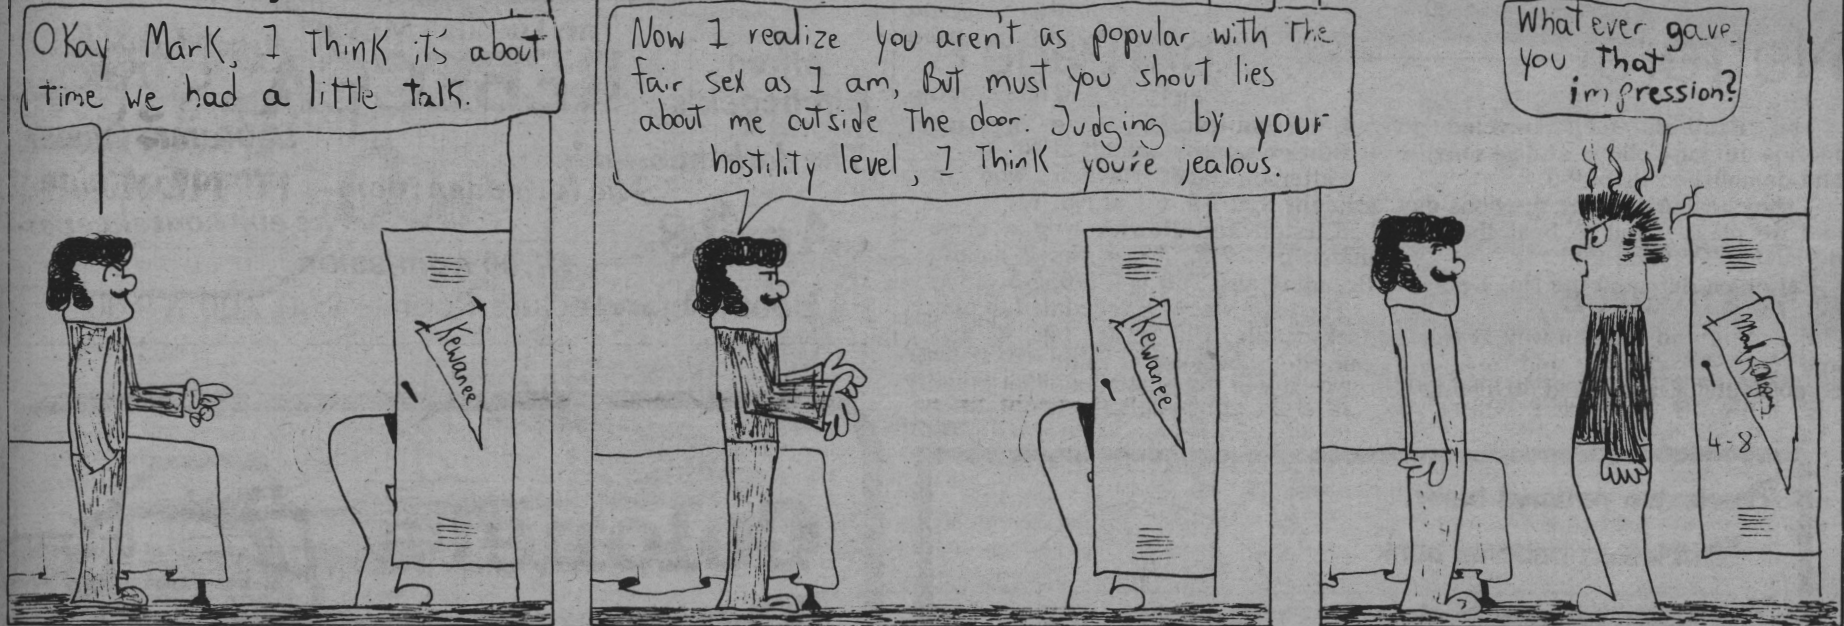 Okay Mark, I think it's about
time we had a little talk.
Now I realize you aren't as popular with the
fair sex as I am, But must you shout lies
about me outside the door. Judging by your
hostility level, I think you're jealous.
What ever gave
you that
impression?
Kewanee
Kewanee
4-8